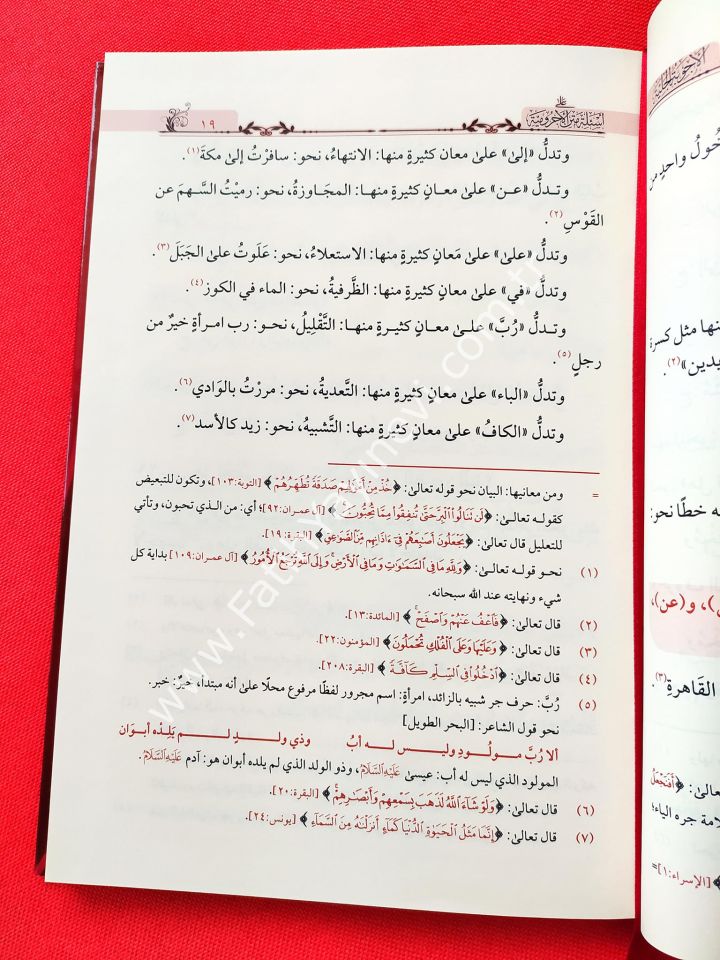 أسئلة متن الآجرومية
على
١٩
وتدلُّ «إلى» على معان كثيرةٍ منها: الانتهاءُ، نحو: سافرْتُ إلىٰ مكةَ(١).
وتـدلُّ «عـن» على معـانٍ كثيرةٍ منهـا: المجَـاوزةُ، نحو: رميْتُ السَّـهمَ عن
القَوْسِ(٢).
وتدلُّ «على» على مَعانٍ كثيرةٍ منها: الاستعلاءُ، نحو: عَلَوتُ على الجَبَلَ(٣).
وتدلُّ «في» على معانٍ كثيرةٍ منها: الظَّرفيةُ، نحو: الماء في الكوز(٤).
وتـدلُّ «رُبَّ» علـىٰ معـانٍ كثيـرةٍ منهـا: التَّقْلِيلُ، نحـو: رب امـرأةٍ خيرٌ من
رجلٍ(٥).
وتدلُّ «الباء» على معانٍ كثيرةٍ منها: التَّعديةُ، نحو: مررْتُ بالوَادي(٦).
وتدلُّ «الكافُ» على معانٍ كثيرةٍ منها: التَّشبيهُ، نحو: زيد كالأسد(٧).
= ومن معانيها: البيان نحو قوله تعالىٰ: ﴿خُذْ مِنْ أَمْوَٰلِهِمْ صَدَقَةً تُطَهِّرُهُمْ﴾ [التوبة:١٠٣]، وتكون للتبعيض
كقولـه تعالـىٰ: ﴿لَن تَنَالُوا۟ ٱلْبِرَّ حَتَّىٰ تُنفِقُوا۟ مِمَّا تُحِبُّونَ﴾ [آل عمران:٩٢]؛ أي: من الـذي تحبون، وتأتي
للتعليل قال تعالىٰ: ﴿يَجْعَلُونَ أَصَٰبِعَهُمْ فِىٓ ءَاذَانِهِم مِّنَ ٱلصَّوَٰعِقِ﴾ [البقرة:١٩].
(١) نحـو قولـه تعالـىٰ: ﴿وَلِلَّهِ مَا فِى ٱلسَّمَٰوَٰتِ وَمَا فِى ٱلْأَرْضِ وَإِلَى ٱللَّهِ تُرْجَعُ ٱلْأُمُورُ﴾ [آل عمران:١٠٩] بداية كل
شيء ونهايته عند الله سبحانه.
(٢) قال تعالىٰ: ﴿فَٱعْفُ عَنْهُمْ وَٱصْفَحْ﴾ [المائدة:١٣].
(٣) قال تعالىٰ: ﴿وَعَلَيْهَا وَعَلَى ٱلْفُلْكِ تُحْمَلُونَ﴾ [المؤمنون:٢٢].
(٤) قال تعالىٰ: ﴿ٱدْخُلُوا۟ فِى ٱلسِّلْمِ كَآفَّةً﴾ [البقرة:٢٠٨].
(٥) رُبَّ: حرف جر شبيه بالزائد، امرأةٍ: اسم مجرور لفظًا مرفوع محلًا على أنه مبتدأ، خيرٌ: خبر.
نحو قول الشاعر: [البحر الطويل]
ألا رُبَّ مـولُـودٍ وليـس لـه أبٌ وذي ولـدٍ لـم يَلِدْه أبوان
المولود الذي ليس له أب: عيسىٰ عَلَيْهِ السَّلَامُ، وذو الولد الذي لم يلده أبوان هو: آدم عَلَيْهِ السَّلَامُ.
(٦) قال تعالىٰ: ﴿وَلَوْ شَآءَ ٱللَّهُ لَذَهَبَ بِسَمْعِهِمْ وَأَبْصَٰرِهِمْ﴾ [البقرة:٢٠].
(٧) قال تعالىٰ: ﴿إِنَّمَا مَثَلُ ٱلْحَيَوٰةِ ٱلدُّنْيَا كَمَآءٍ أَنزَلْنَٰهُ مِنَ ٱلسَّمَآءِ﴾ [يونس:٢٤].
خُولُ واحدٍ من
نها مثل كسرة
يدين»(٢).
ه خطًا نحو:
)، و(عن)،
القَاهرةِ(٣).
عالىٰ: ﴿أَفَنَجْعَلُ
لامة جره الياء؛
[الإسراء:١]=
www.FatihYayinevi.com.tr